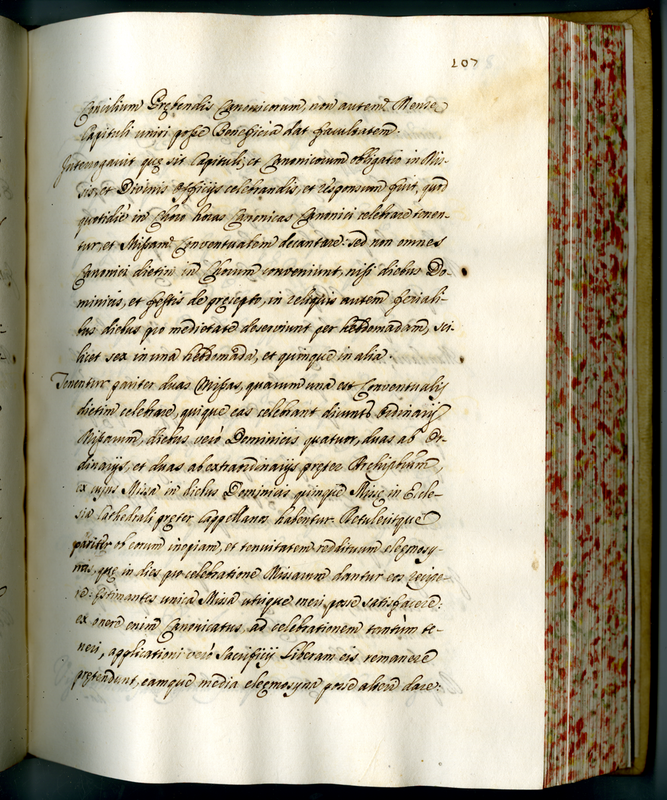 107
Concilium Prębendis Canonicorum, non autem Mensę
Capituli uniri posse Beneficia dat facultatem.
Interrogavit quę sit Capituli, et Canonicorum obligatio in Mis-
sis, et Divinis Officijs celebrandis, et responsum fuit, quod
quotidie in Choro horas Canonicas Canonici celebrare tenen-
tur, et Missam Conventualem decantare: sed non omnes
Canonici dietim in Chorum conveniunt, nisi diebus Do-
minicis, et festis de pręcepto, in reliquis autem feriali-
bus diebus pro medietate deserviunt per hebdomadam, sci-
licet sex in una hebdomada, et quinque in alia.
Tenentur pariter duas Missas, quarum una est Conventualis
dietim celebrare, quique eas celebrant dicuntur Ordinarij
Missarum, diebus verò Dominicis quatuor, duas ab Or-
dinarijs, et duas ab extraordinarijs pręter Archipbrum,
ex cujus Missa in diebus Dominicis quinque Missę in Eccle-
sia Cathedrali pręter Cappellanos habentur. Retulitque
pariter ob eorum inopiam, et tenuitatem reddituum eleemosy-
nas, quę in dies pro celebratione Missarum dantur eos recipe-
re: Estimantes unica Missa utrique meri posse satisfacere:
ex onere enim Canonicatus, ad celebrationem tantùm te-
neri, applicationi verò Sacrificij Liberam eis remanere
prętendunt, eamque media eleemosyna posse alteri dare: